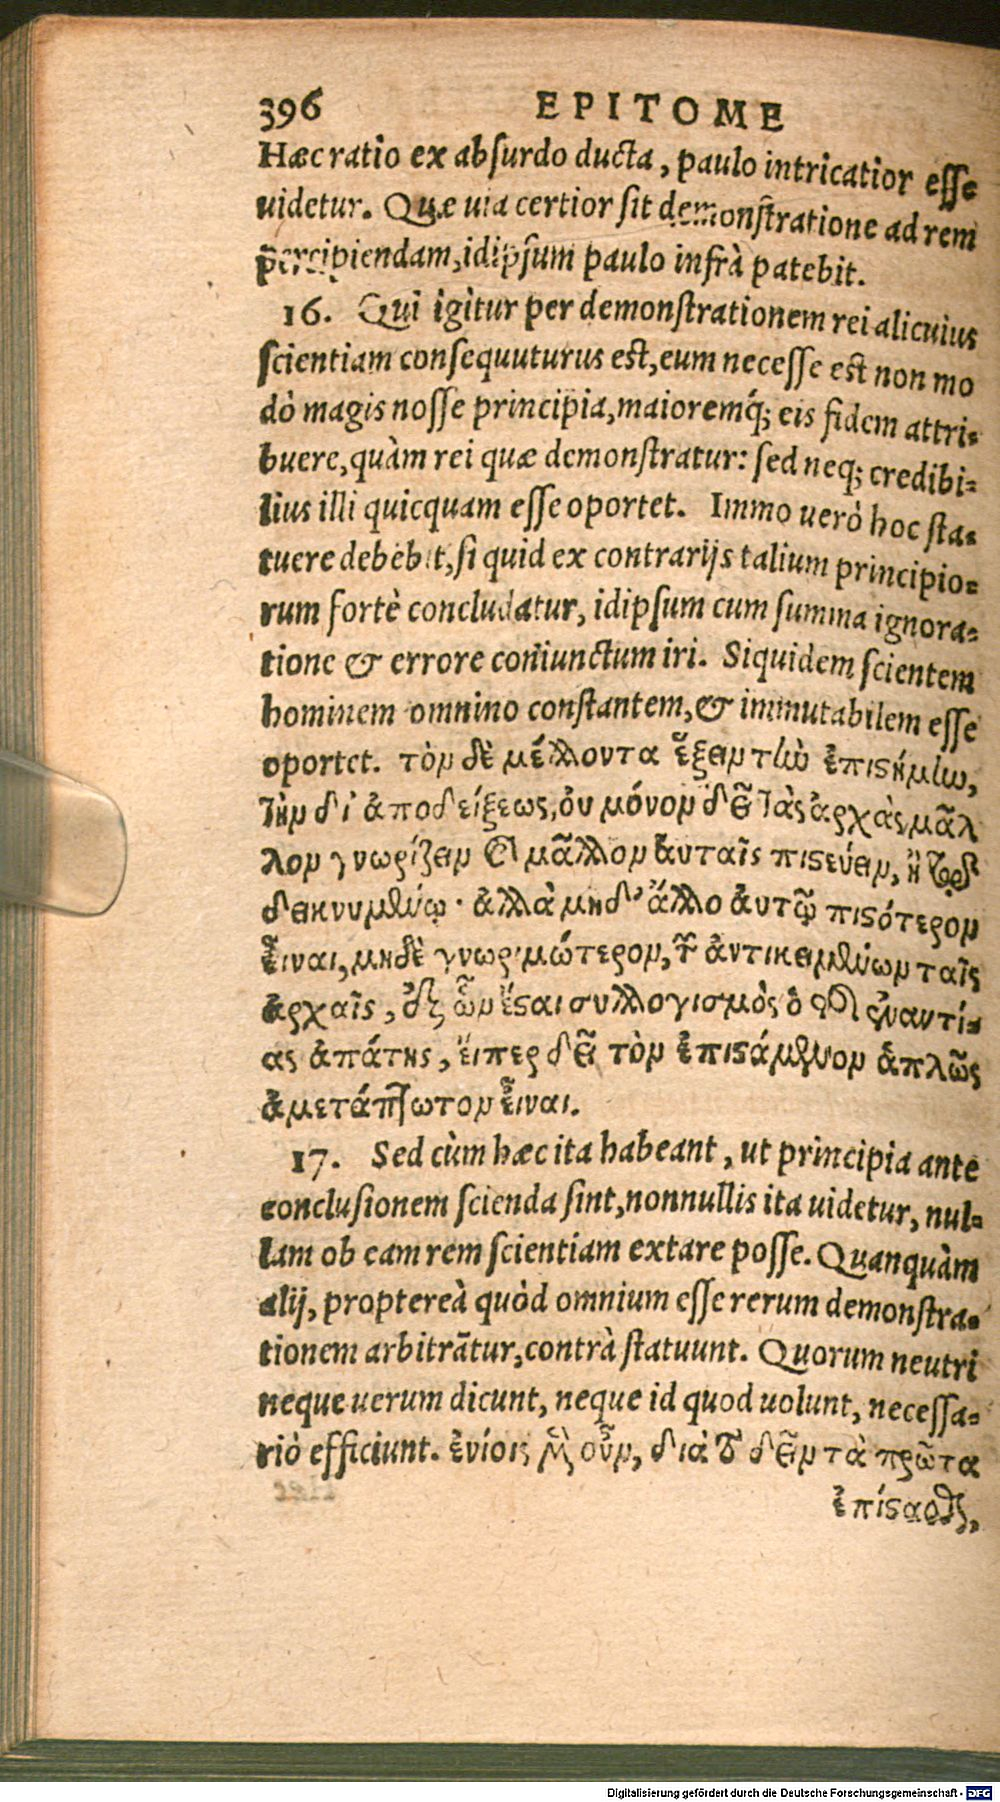 396 EPITOME
Hæc ratio ex absurdo ducta, paulo intricatior esse
uidetur. Quæ uia certior sit demonstratione ad rem
percipiendam, idipsum paulo infrà patebit.
16. Qui igitur per demonstrationem rei alicuius
scientiam consequuturus est, eum necesse est non mo
dò magis nosse principia, maioremq́; eis fidem attri-
buere, quàm rei quæ demonstratur: sed neq; credibi-
lius illi quicquam esse oportet. Immo uerò hoc sta-
tuere debebit, si quid ex contrarijs talium principio-
rum fortè concludatur, idipsum cum summa ignora-
tione & errore coniunctum iri. Siquidem scientem
hominem omnino constantem, & immutabilem esse
oportet. τὸν δὲ μέλλοντα ἕξειν τὴν ἐπιστήμην,
τὴν δι' ἀποδείξεως, οὐ μόνον δεῖ τὰς ἀρχὰς μᾶλ
λον γνωρίζειν καὶ μᾶλλον ἀυταῖς πιστεύειν, ἢ τῷ
δεικνυμένῳ· ἀλλὰ μηδ' ἄλλο ἀυτῷ πιστότερον
εἶναι, μηδὲ γνωριμώτερον, τῶν ἀντικειμένων ταῖς
ἀρχαῖς, ἐξ ὧν ἔσται συλλογισμὸς ὁ τῆς ἐναντί-
ας ἀπάτης, ἔιπερ δεῖ τὸν ἐπιστάμενον ἁπλῶς
ἀμετάπτωτον εἶναι.
17. Sed cùm hæc ita habeant, ut principia ante
conclusionem scienda sint, nonnullis ita uidetur, nul-
lam ob eam rem scientiam extare posse. Quanquàm
alij, proptereà quòd omnium esse rerum demonstra-
tionem arbitrātur, contrà statuunt. Quorum neutri
neque uerum dicunt, neque id quod uolunt, necessa-
riò efficiunt. ἐνίοις μὲν οὖν, διὰ τὸ δεῖν τὰ πρῶτα
ἐπίστασθαι,
Digitalisierung gefördert durch die Deutsche Forschungsgemeinschaft - DFG